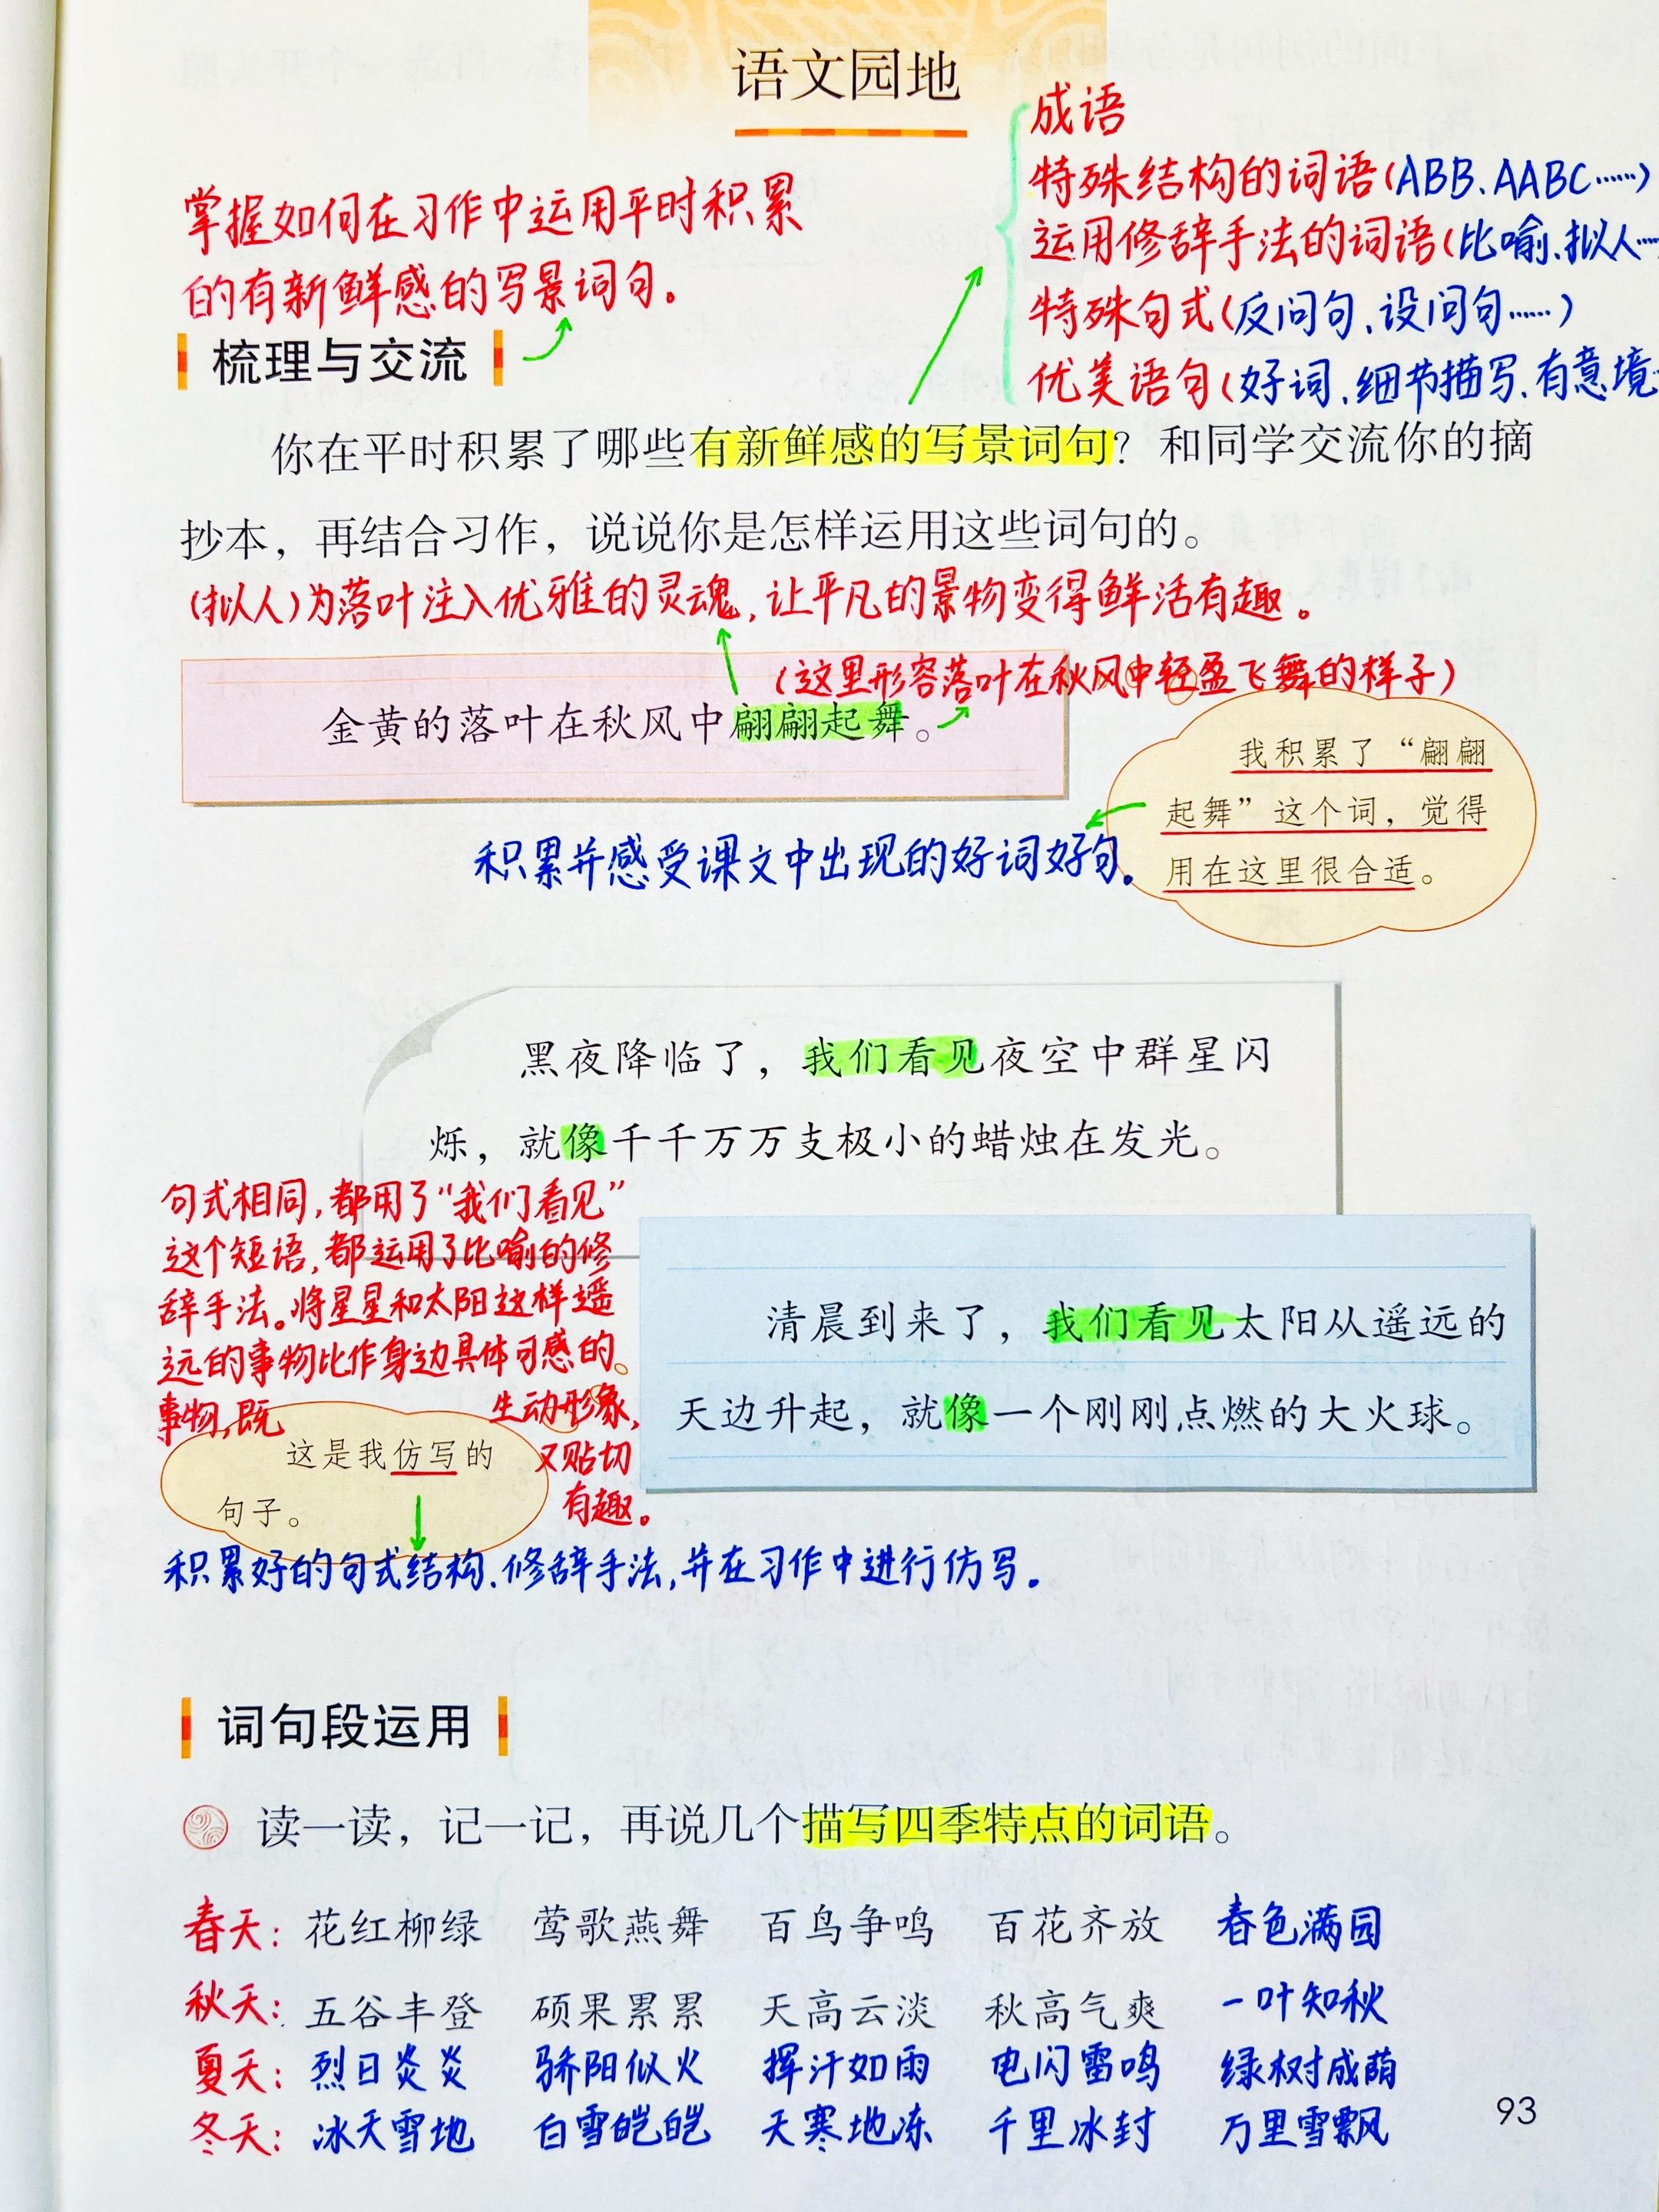 语文园地
成语
特殊结构的词语(ABB、AABC……)
运用修辞手法的词语(比喻、拟人…
特殊句式(反问句、设问句……)
优美语句(好词、细节描写、有意境…
掌握如何在习作中运用平时积累
的有新鲜感的写景词句。
梳理与交流
你在平时积累了哪些有新鲜感的写景词句?和同学交流你的摘
抄本,再结合习作,说说你是怎样运用这些词句的。
(拟人)为落叶注入优雅的灵魂,让平凡的景物变得鲜活有趣。
(这里形容落叶在秋风中轻盈飞舞的样子)
金黄的落叶在秋风中翩翩起舞。
我积累了“翩翩
起舞”这个词,觉得
用在这里很合适。
积累并感受课文中出现的好词好句。
黑夜降临了,我们看见夜空中群星闪
烁,就像千千万万支极小的蜡烛在发光。
句式相同,都用了“我们看见”
这个短语,都运用了比喻的修
辞手法。将星星和太阳这样遥
远的事物比作身边具体可感的
事物,既生动形象,
又贴切
有趣。
清晨到来了,我们看见太阳从遥远的
天边升起,就像一个刚刚点燃的大火球。
这是我仿写的
句子。
积累好的句式结构、修辞手法,并在习作中进行仿写。
词句段运用
读一读,记一记,再说几个描写四季特点的词语。
春天: 花红柳绿 莺歌燕舞 百鸟争鸣 百花齐放 春色满园
秋天: 五谷丰登 硕果累累 天高云淡 秋高气爽 一叶知秋
夏天: 烈日炎炎 骄阳似火 挥汗如雨 电闪雷鸣 绿树成荫
冬天: 冰天雪地 白雪皑皑 天寒地冻 千里冰封 万里雪飘
93